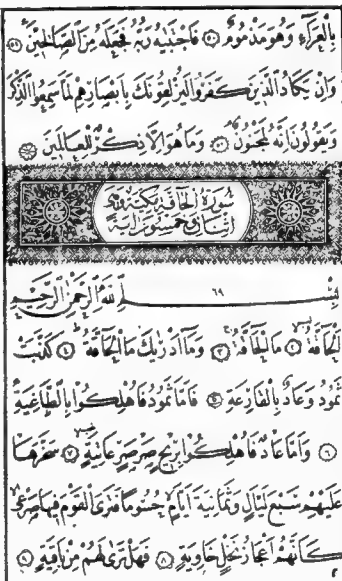 بِالْعَرَاءِ وَهُوَ مَذْمُومٌ ﴿٤٩﴾ فَاجْتَبٰيهُ رَبُّهُ فَجَعَلَهُ مِنَ الصَّالِحِينَ ﴿٥٠﴾
وَاِنْ يَكَادُ الَّذِينَ كَفَرُوا لَيُزْلِقُونَكَ بِاَبْصَارِهِمْ لَمَّا سَمِعُوا الذِّكْرَ
وَيَقُولُونَ اِنَّهُ لَمَجْنُونٌ ﴿٥١﴾ وَمَا هُوَ اِلَّا ذِكْرٌ لِلْعَالَمِينَ ﴿٥٢﴾
سُورَةُ الْحَاقَّةِ مَكِّيَّةٌ وَهِيَ
اثْنَتَانِ وَخَمْسُونَ اٰيَةً
٦٩
بِسْمِ اللّٰهِ الرَّحْمٰنِ الرَّحِيمِ
اَلْحَاقَّةُ ﴿١﴾ مَا الْحَاقَّةُ ﴿٢﴾ وَمَا اَدْرٰيكَ مَا الْحَاقَّةُ ﴿٣﴾ كَذَّبَتْ
ثَمُودُ وَعَادٌ بِالْقَارِعَةِ ﴿٤﴾ فَاَمَّا ثَمُودُ فَاُهْلِكُوا بِالطَّاغِيَةِ
﴿٥﴾ وَاَمَّا عَادٌ فَاُهْلِكُوا بِرِيحٍ صَرْصَرٍ عَاتِيَةٍ ﴿٦﴾ سَخَّرَهَا
عَلَيْهِمْ سَبْعَ لَيَالٍ وَثَمَانِيَةَ اَيَّامٍ حُسُومًا فَتَرَى الْقَوْمَ فِيهَا صَرْعٰى
كَاَنَّهُمْ اَعْجَازُ نَخْلٍ خَاوِيَةٍ ﴿٧﴾ فَهَلْ تَرٰى لَهُمْ مِنْ بَاقِيَةٍ ﴿٨﴾